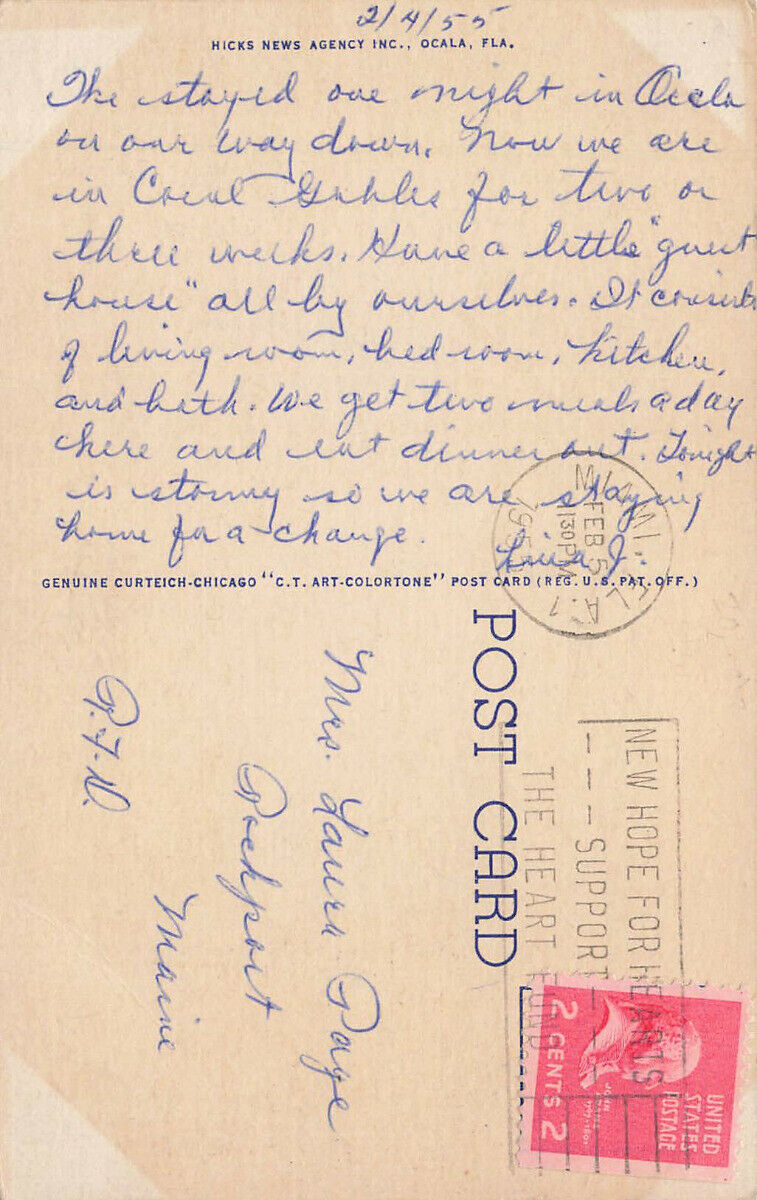 2/4/55
HICKS NEWS AGENCY INC., OCALA, FLA.
We stayed one night in Ocala
on our way down. Now we are
in Coral Gables for two or
three weeks. Have a little "guest
house" all by ourselves. It consists
of living room, bed room, kitchen,
and bath. We get two meals a day
here and eat dinner out. Tonight
is stormy so we are staying
home for a change.
J.
GENUINE CURTEICH-CHICAGO "C.T. ART-COLORTONE" POST CARD (REG. U.S. PAT. OFF.)
MIAMI, FLA. 1
FEB 5
130 PM
POST CARD
Mrs. Laura Page
Rockport
Maine
R.F.D.
NEW HOPE FOR HEARTS
--- SUPPORT ---
THE HEART FUND
UNITED
STATES
POSTAGE
JOHN
2 CENTS 2